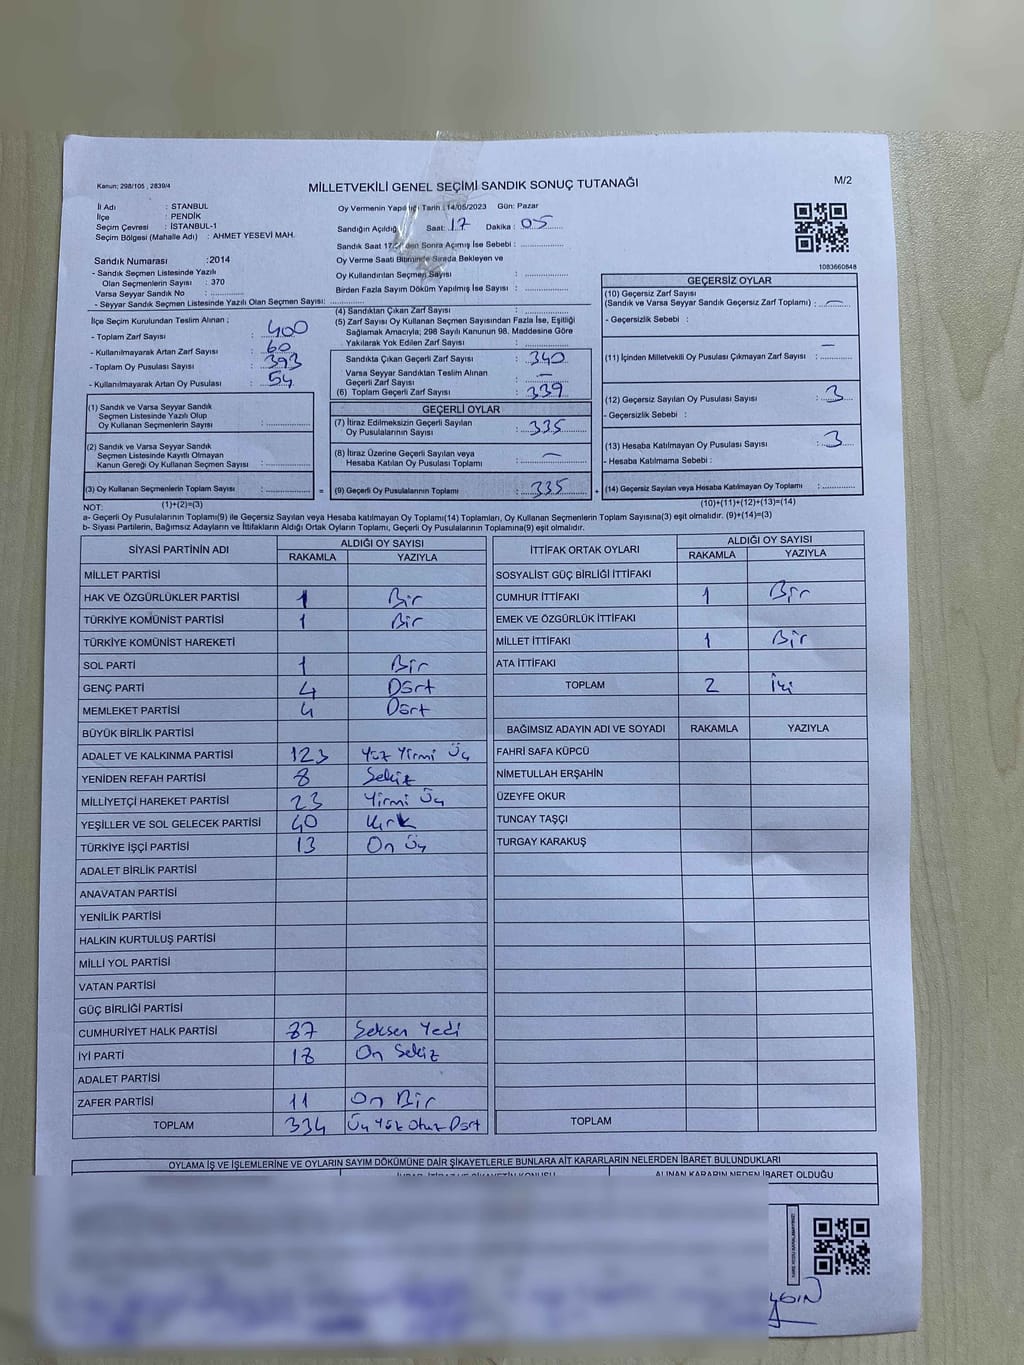 Kanun; 298/105 , 2839/4
MİLLETVEKİLİ GENEL SEÇİMİ SANDIK SONUÇ TUTANAĞI
M/2
İl Adı : STANBUL
İlçe : PENDİK
Seçim Çevresi : İSTANBUL-1
Seçim Bölgesi (Mahalle Adı) : AHMET YESEVİ MAH.
Sandık Numarası :2014
- Sandık Seçmen Listesinde Yazılı
Olan Seçmenlerin Sayısı : 370
Varsa Seyyar Sandık No :
- Seyyar Sandık Seçmen Listesinde Yazılı Olan Seçmen Sayısı:
İlçe Seçim Kurulundan Teslim Alınan ;
- Toplam Zarf Sayısı : 400
- Kullanılmayarak Artan Zarf Sayısı : 60
- Toplam Oy Pusulası Sayısı : 393
- Kullanılmayarak Artan Oy Pusulası : 54
(1) Sandık ve Varsa Seyyar Sandık
Seçmen Listesinde Yazılı Olup
Oy Kullanan Seçmenlerin Sayısı :
(2) Sandık ve Varsa Seyyar Sandık
Seçmen Listesinde Kayıtlı Olmayan
Kanun Gereği Oy Kullanan Seçmen Sayısı :
(3) Oy Kullanan Seçmenlerin Toplam Sayısı :
(1)+(2)=(3)
Oy Vermenin Yapıldığı Tarih : 14/05/2023 Gün: Pazar
Sandığın Açıldığı Saat: 17 Dakika : 05
Sandık Saat 17: den Sonra Açmış İse Sebebi :
Oy Verme Saati Bitiminde Sırada Bekleyen ve
Oy Kullandırılan Seçmen Sayısı :
Birden Fazla Sayım Döküm Yapılmış İse Sayısı :
(4) Sandıktan Çıkan Zarf Sayısı :
(5) Zarf Sayısı Oy Kullanan Seçmen Sayısından Fazla İse, Eşitliği
Sağlamak Amacıyla; 298 Sayılı Kanunun 98. Maddesine Göre
Yakılarak Yok Edilen Zarf Sayısı :
Sandıkta Çıkan Geçerli Zarf Sayısı : 340
Varsa Seyyar Sandıktan Teslim Alınan
Geçerli Zarf Sayısı : —
(6) Toplam Geçerli Zarf Sayısı : 339
GEÇERLİ OYLAR
(7) İtiraz Edilmeksizin Geçerli Sayılan
Oy Pusulalarının Sayısı : 335
(8) İtiraz Üzerine Geçerli Sayılan veya
Hesaba Katılan Oy Pusulası Toplamı : —
= (9) Geçerli Oy Pusulalarının Toplamı : 335
1083660848
GEÇERSİZ OYLAR
(10) Geçersiz Zarf Sayısı
(Sandık ve Varsa Seyyar Sandık Geçersiz Zarf Toplamı) : —
- Geçersizlik Sebebi :
(11) İçinden Milletvekili Oy Pusulası Çıkmayan Zarf Sayısı : —
(12) Geçersiz Sayılan Oy Pusulası Sayısı : 3
- Geçersizlik Sebebi :
(13) Hesaba Katılmayan Oy Pusulası Sayısı : 3
- Hesaba Katılmama Sebebi :
+ (14) Geçersiz Sayılan veya Hesaba Katılmayan Oy Toplamı :
(10)+(11)+(12)+(13)=(14)
NOT:
a- Geçerli Oy Pusulalarının Toplamı(9) ile Geçersiz Sayılan veya Hesaba katılmayan Oy Toplamı(14) Toplamları, Oy Kullanan Seçmenlerin Toplam Sayısına(3) eşit olmalıdır. (9)+(14)=(3)
b- Siyasi Partilerin, Bağımsız Adayların ve İttifakların Aldığı Ortak Oyların Toplamı, Geçerli Oy Pusulalarının Toplamına(9) eşit olmalıdır.
SİYASİ PARTİNİN ADI ALDIĞI OY SAYISI
RAKAMLA YAZIYLA
MİLLET PARTİSİ
HAK VE ÖZGÜRLÜKLER PARTİSİ 1 Bir
TÜRKİYE KOMÜNİST PARTİSİ 1 Bir
TÜRKİYE KOMÜNİST HAREKETİ
SOL PARTİ 1 Bir
GENÇ PARTİ 4 Dört
MEMLEKET PARTİSİ 4 Dört
BÜYÜK BİRLİK PARTİSİ
ADALET VE KALKINMA PARTİSİ 123 Yüz Yirmi Üç
YENİDEN REFAH PARTİSİ 8 Sekiz
MİLLİYETÇİ HAREKET PARTİSİ 23 Yirmi Üç
YEŞİLLER VE SOL GELECEK PARTİSİ 40 Kırk
TÜRKİYE İŞÇİ PARTİSİ 13 On Üç
ADALET BİRLİK PARTİSİ
ANAVATAN PARTİSİ
YENİLİK PARTİSİ
HALKIN KURTULUŞ PARTİSİ
MİLLİ YOL PARTİSİ
VATAN PARTİSİ
GÜÇ BİRLİĞİ PARTİSİ
CUMHURİYET HALK PARTİSİ 87 Seksen Yedi
İYİ PARTİ 18 On Sekiz
ADALET PARTİSİ
ZAFER PARTİSİ 11 On Bir
TOPLAM 334 Üç Yüz Otuz Dört
İTTİFAK ORTAK OYLARI ALDIĞI OY SAYISI
RAKAMLA YAZIYLA
SOSYALİST GÜÇ BİRLİĞİ İTTİFAKI
CUMHUR İTTİFAKI 1 Bir
EMEK VE ÖZGÜRLÜK İTTİFAKI
MİLLET İTTİFAKI 1 Bir
ATA İTTİFAKI
TOPLAM 2 İki
BAĞIMSIZ ADAYIN ADI VE SOYADI RAKAMLA YAZIYLA
FAHRİ SAFA KÜPCÜ
NİMETULLAH ERŞAHİN
ÜZEYFE OKUR
TUNCAY TAŞÇI
TURGAY KARAKUŞ
TOPLAM
OYLAMA İŞ VE İŞLEMLERİNE VE OYLARIN SAYIM DÖKÜMÜNE DAİR ŞİKAYETLERLE BUNLARA AİT KARARLARIN NELERDEN İBARET BULUNDUKLARI
ALINAN KARARIN NEDEN İBARET OLDUĞU